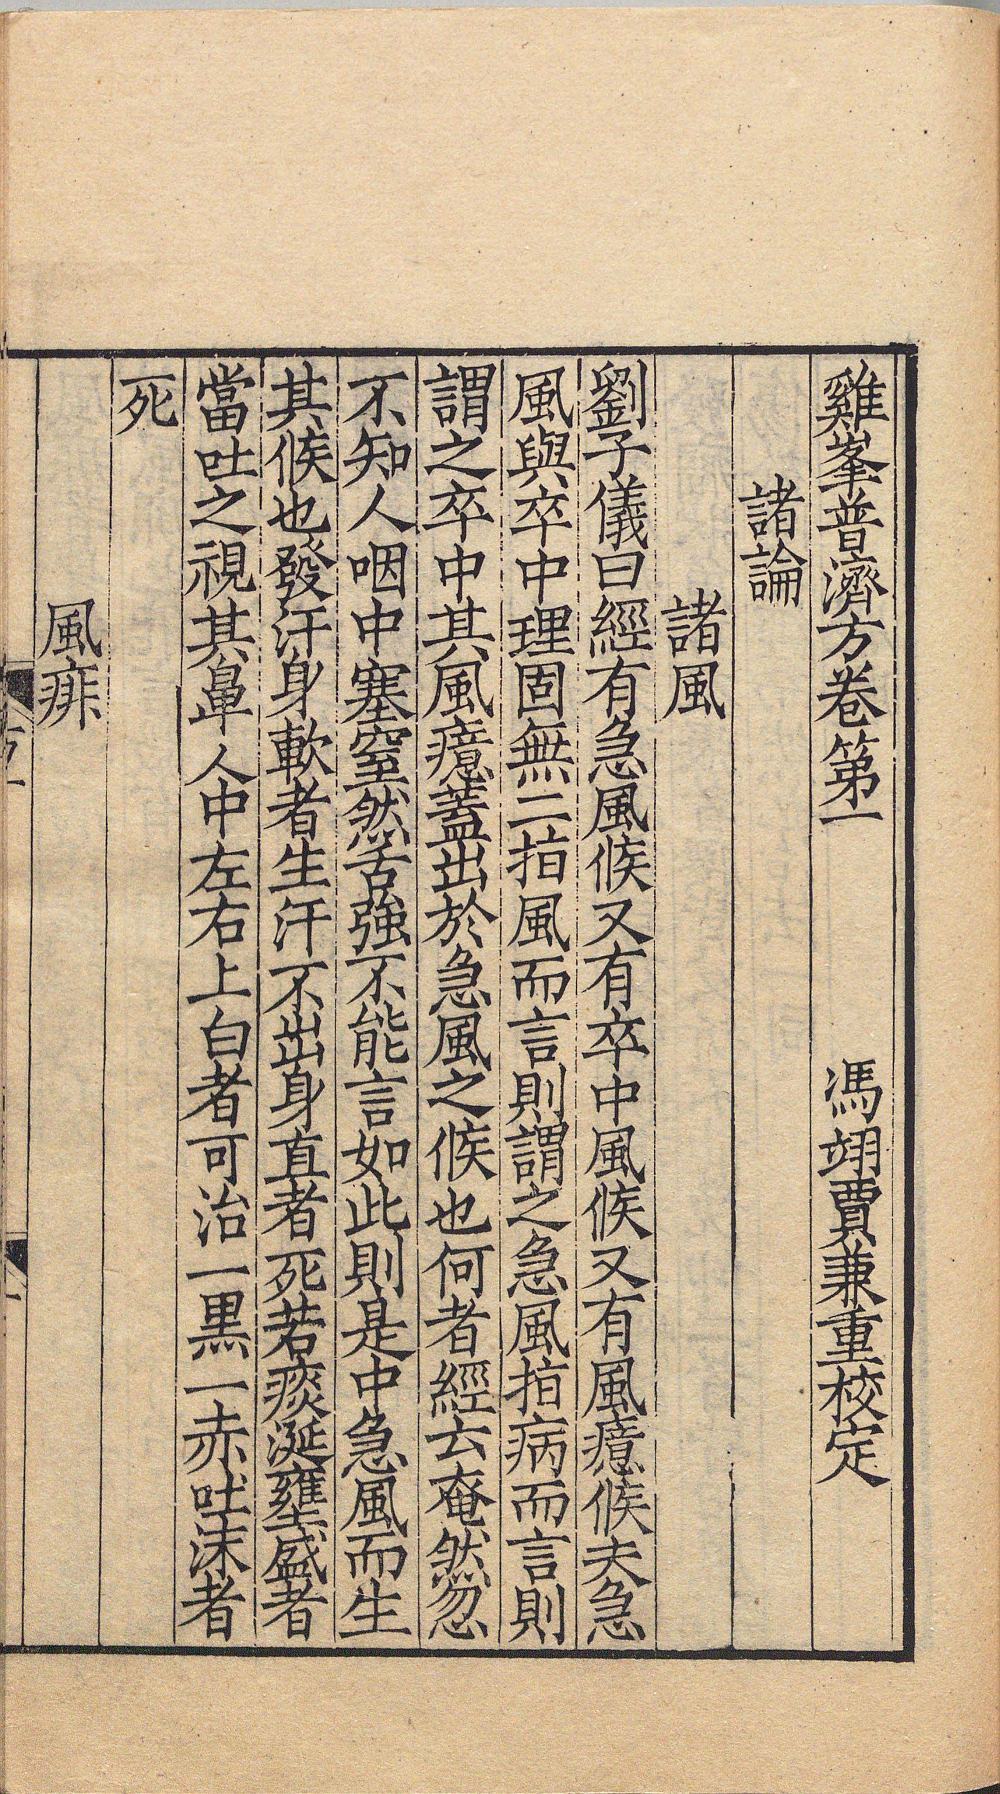 雞峯普濟方卷第一　馮翊賈兼重校定
諸論
諸風
劉子儀曰經有急風候又有卒中風候又有風癔候夫急
風與卒中理固無二指風而言則謂之急風指病而言則
謂之卒中其風癔蓋出於急風之候也何者經云奄然忽
不知人咽中塞窒然舌強不能言如此則是中急風而生
其候也發汗身軟者生汗不出身直者死若痰涎壅盛者
當吐之視其鼻人中左右上白者可治一黑一赤吐沫者
死
風痱